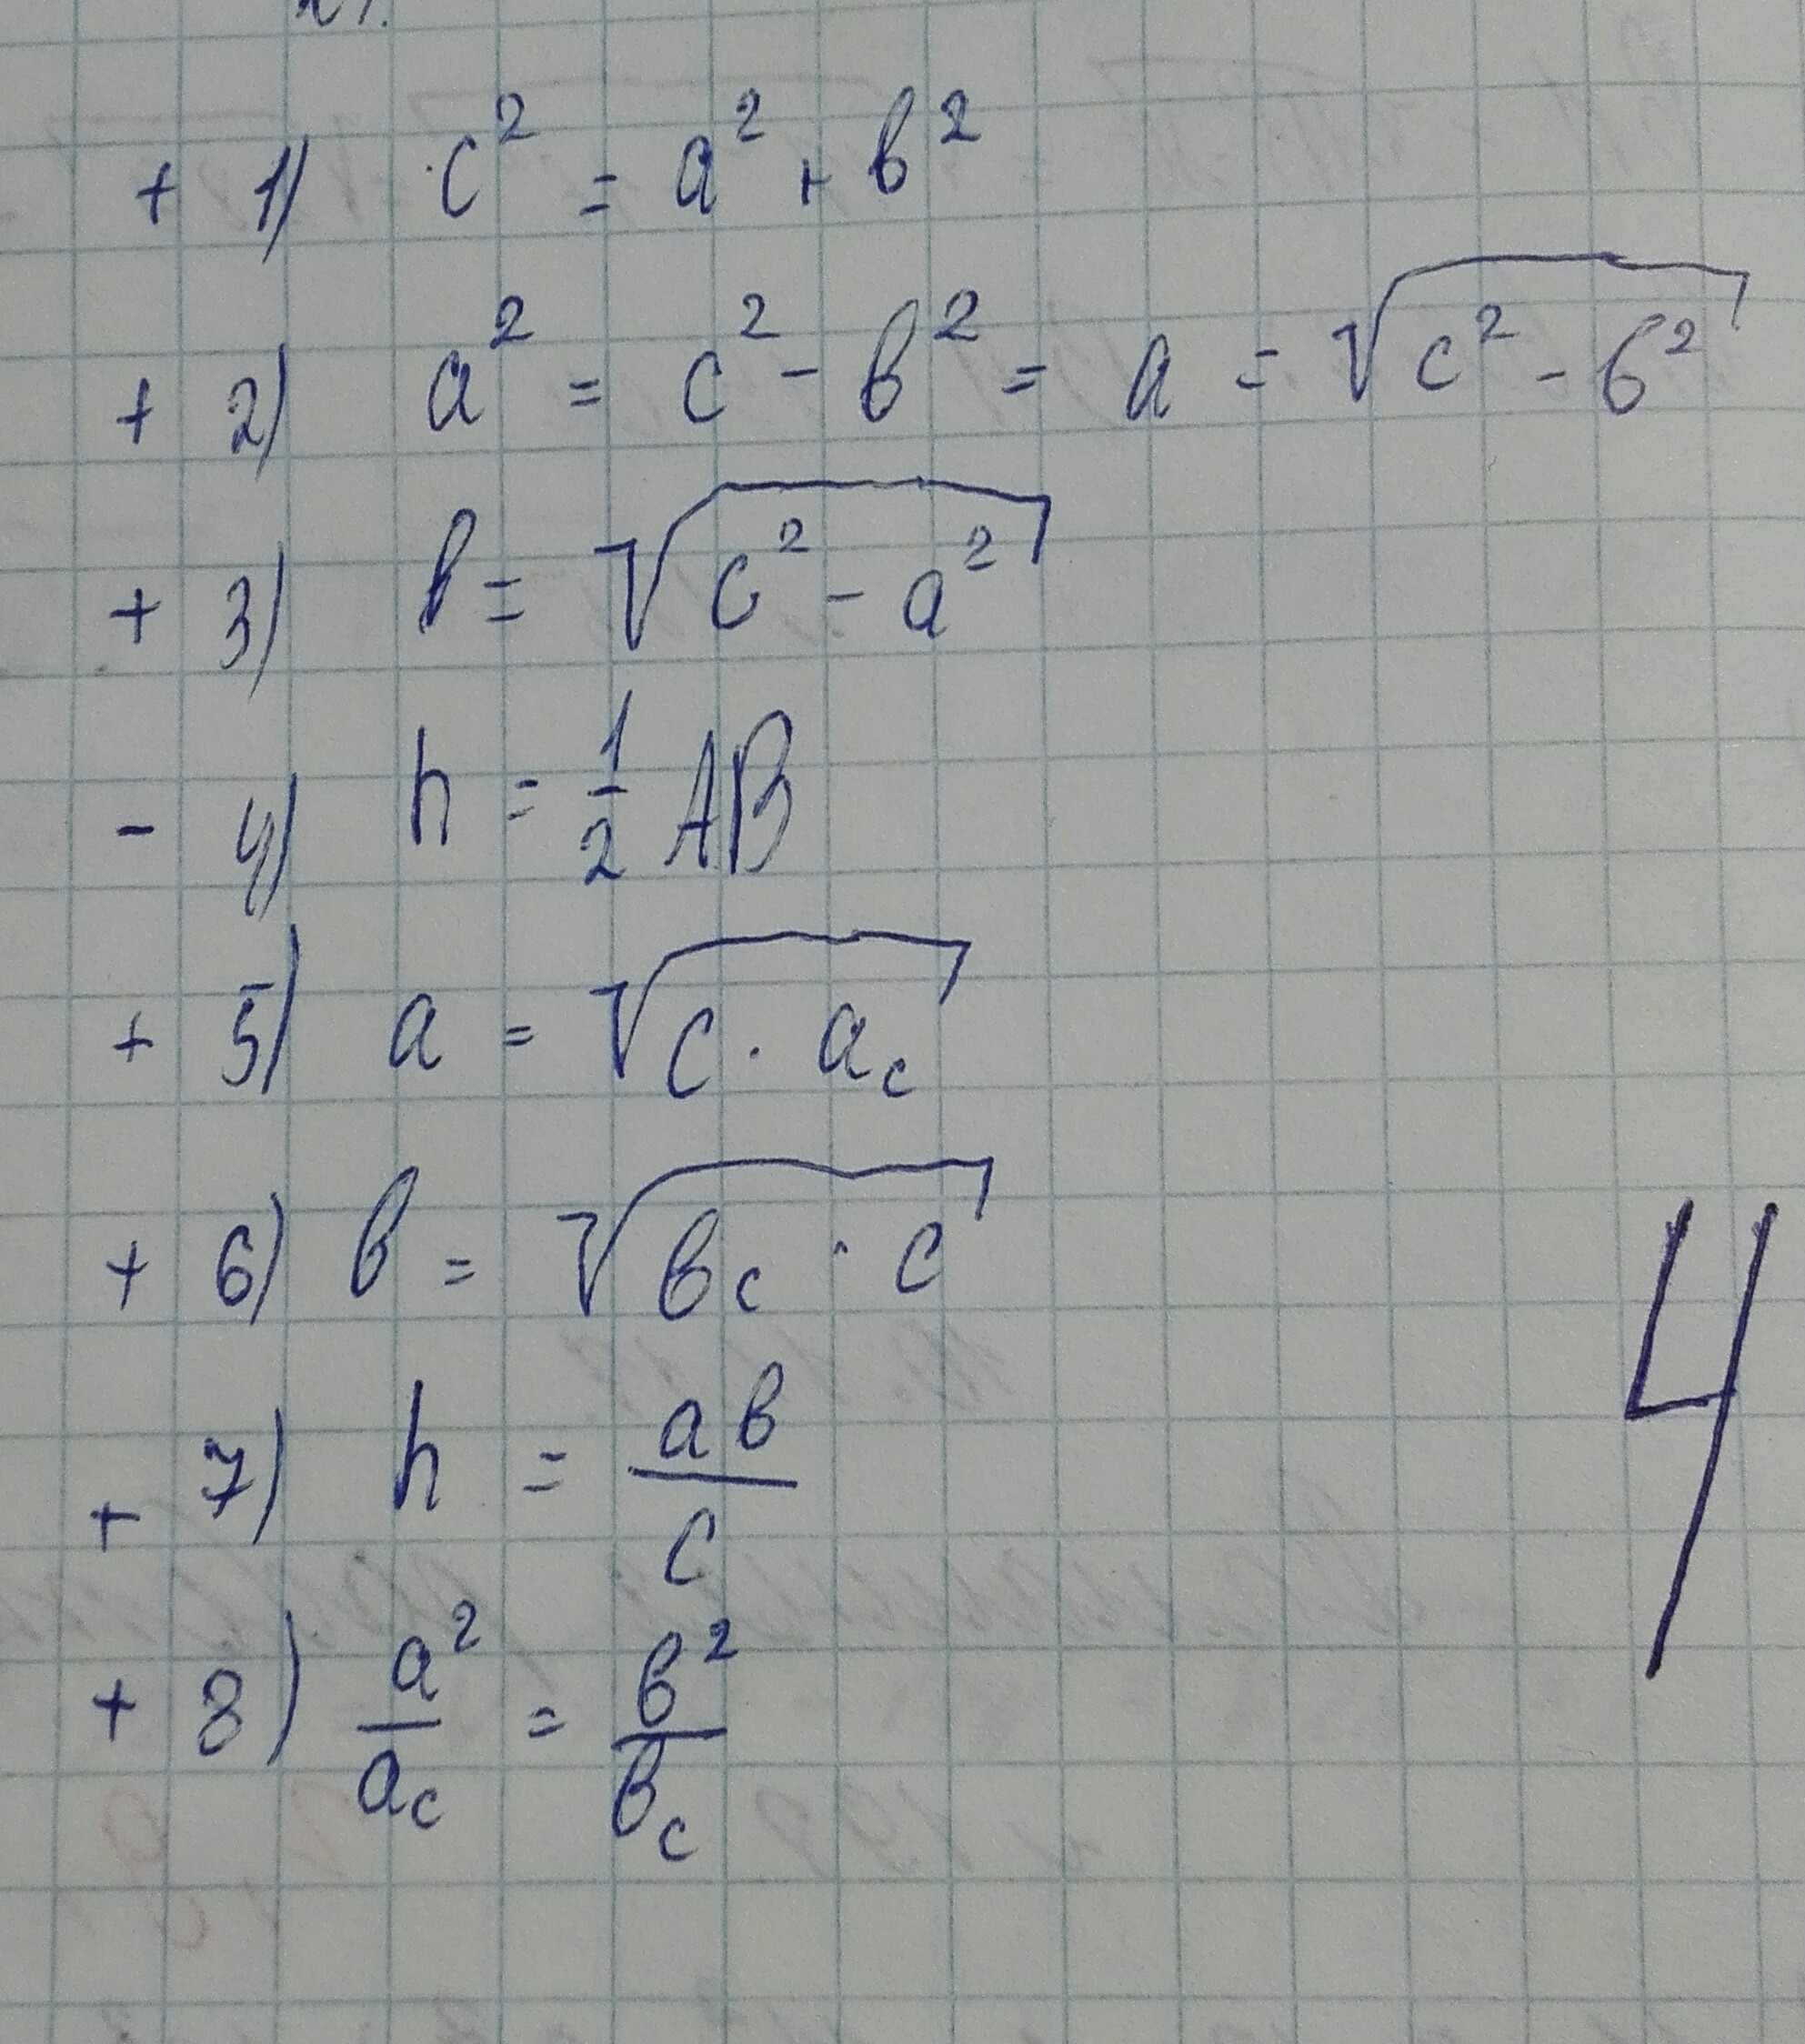 + 1) c² = a² + в²
+ 2) a² = c² - в² = a = √(c² - б²)
+ 3) в = √(c² - a²)
- 4) h = 1/2 AB
+ 5) a = √(c · a_c)
+ 6) в = √(в_c · c)
+ 7) h = aв/c
+ 8) a²/a_c = в²/в_c
4